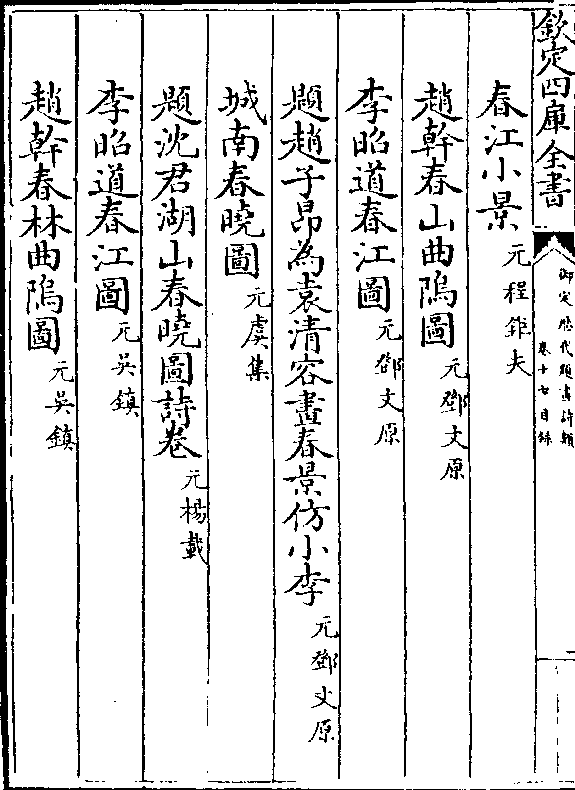 欽定四庫全書
御定歷代題畫詩類
卷十七目錄
春江小景元程鉅夫
趙幹春山曲隖圖元鄧文原
李昭道春江圖元鄧文原
題趙子昂為袁清容畫春景仿小李元鄧文原
城南春曉圖元虞集
題沈君湖山春曉圖詩卷元楊載
李昭道春江圖元吳鎮
趙幹春林曲隖圖元吳鎮